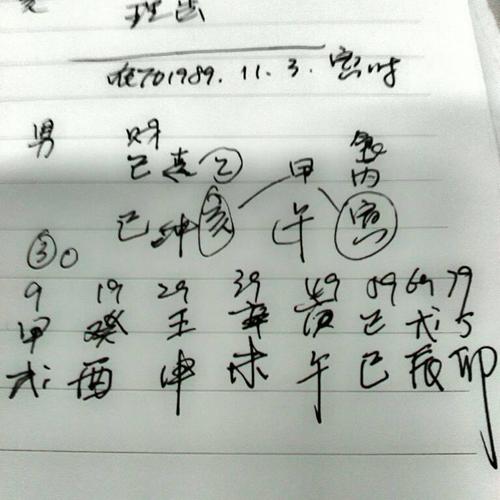 理法
1989.11.3.寅时
男 财
己 乙 甲 丙
巳 亥 午 寅
③0
9 19 29 39 49 59 69 79
甲 癸 壬 辛 庚 己 戊
戌 酉 申 未 午 巳 辰 卯